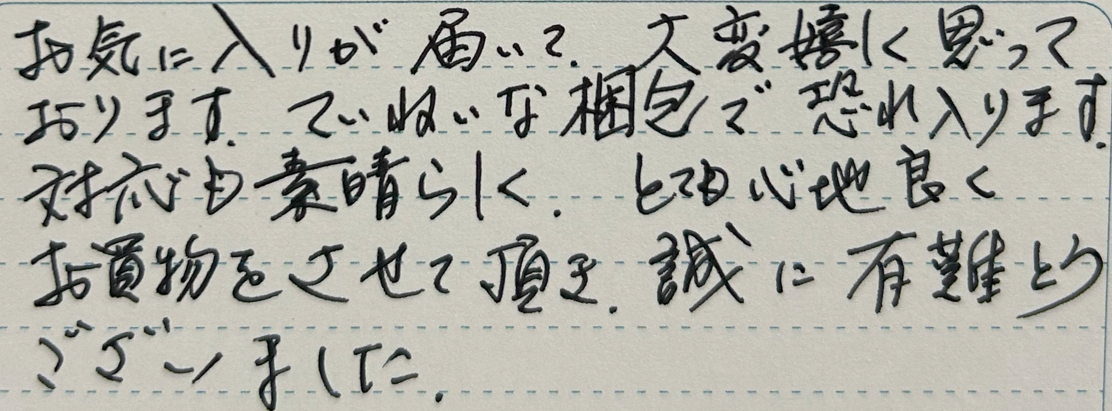 お気に入りが届いて、大変嬉しく思って
おります。ていねいな梱包で恐れ入ります。
対応も素晴らしく、とても心地良く
お買物をさせて頂き、誠に有難とう
ございました。